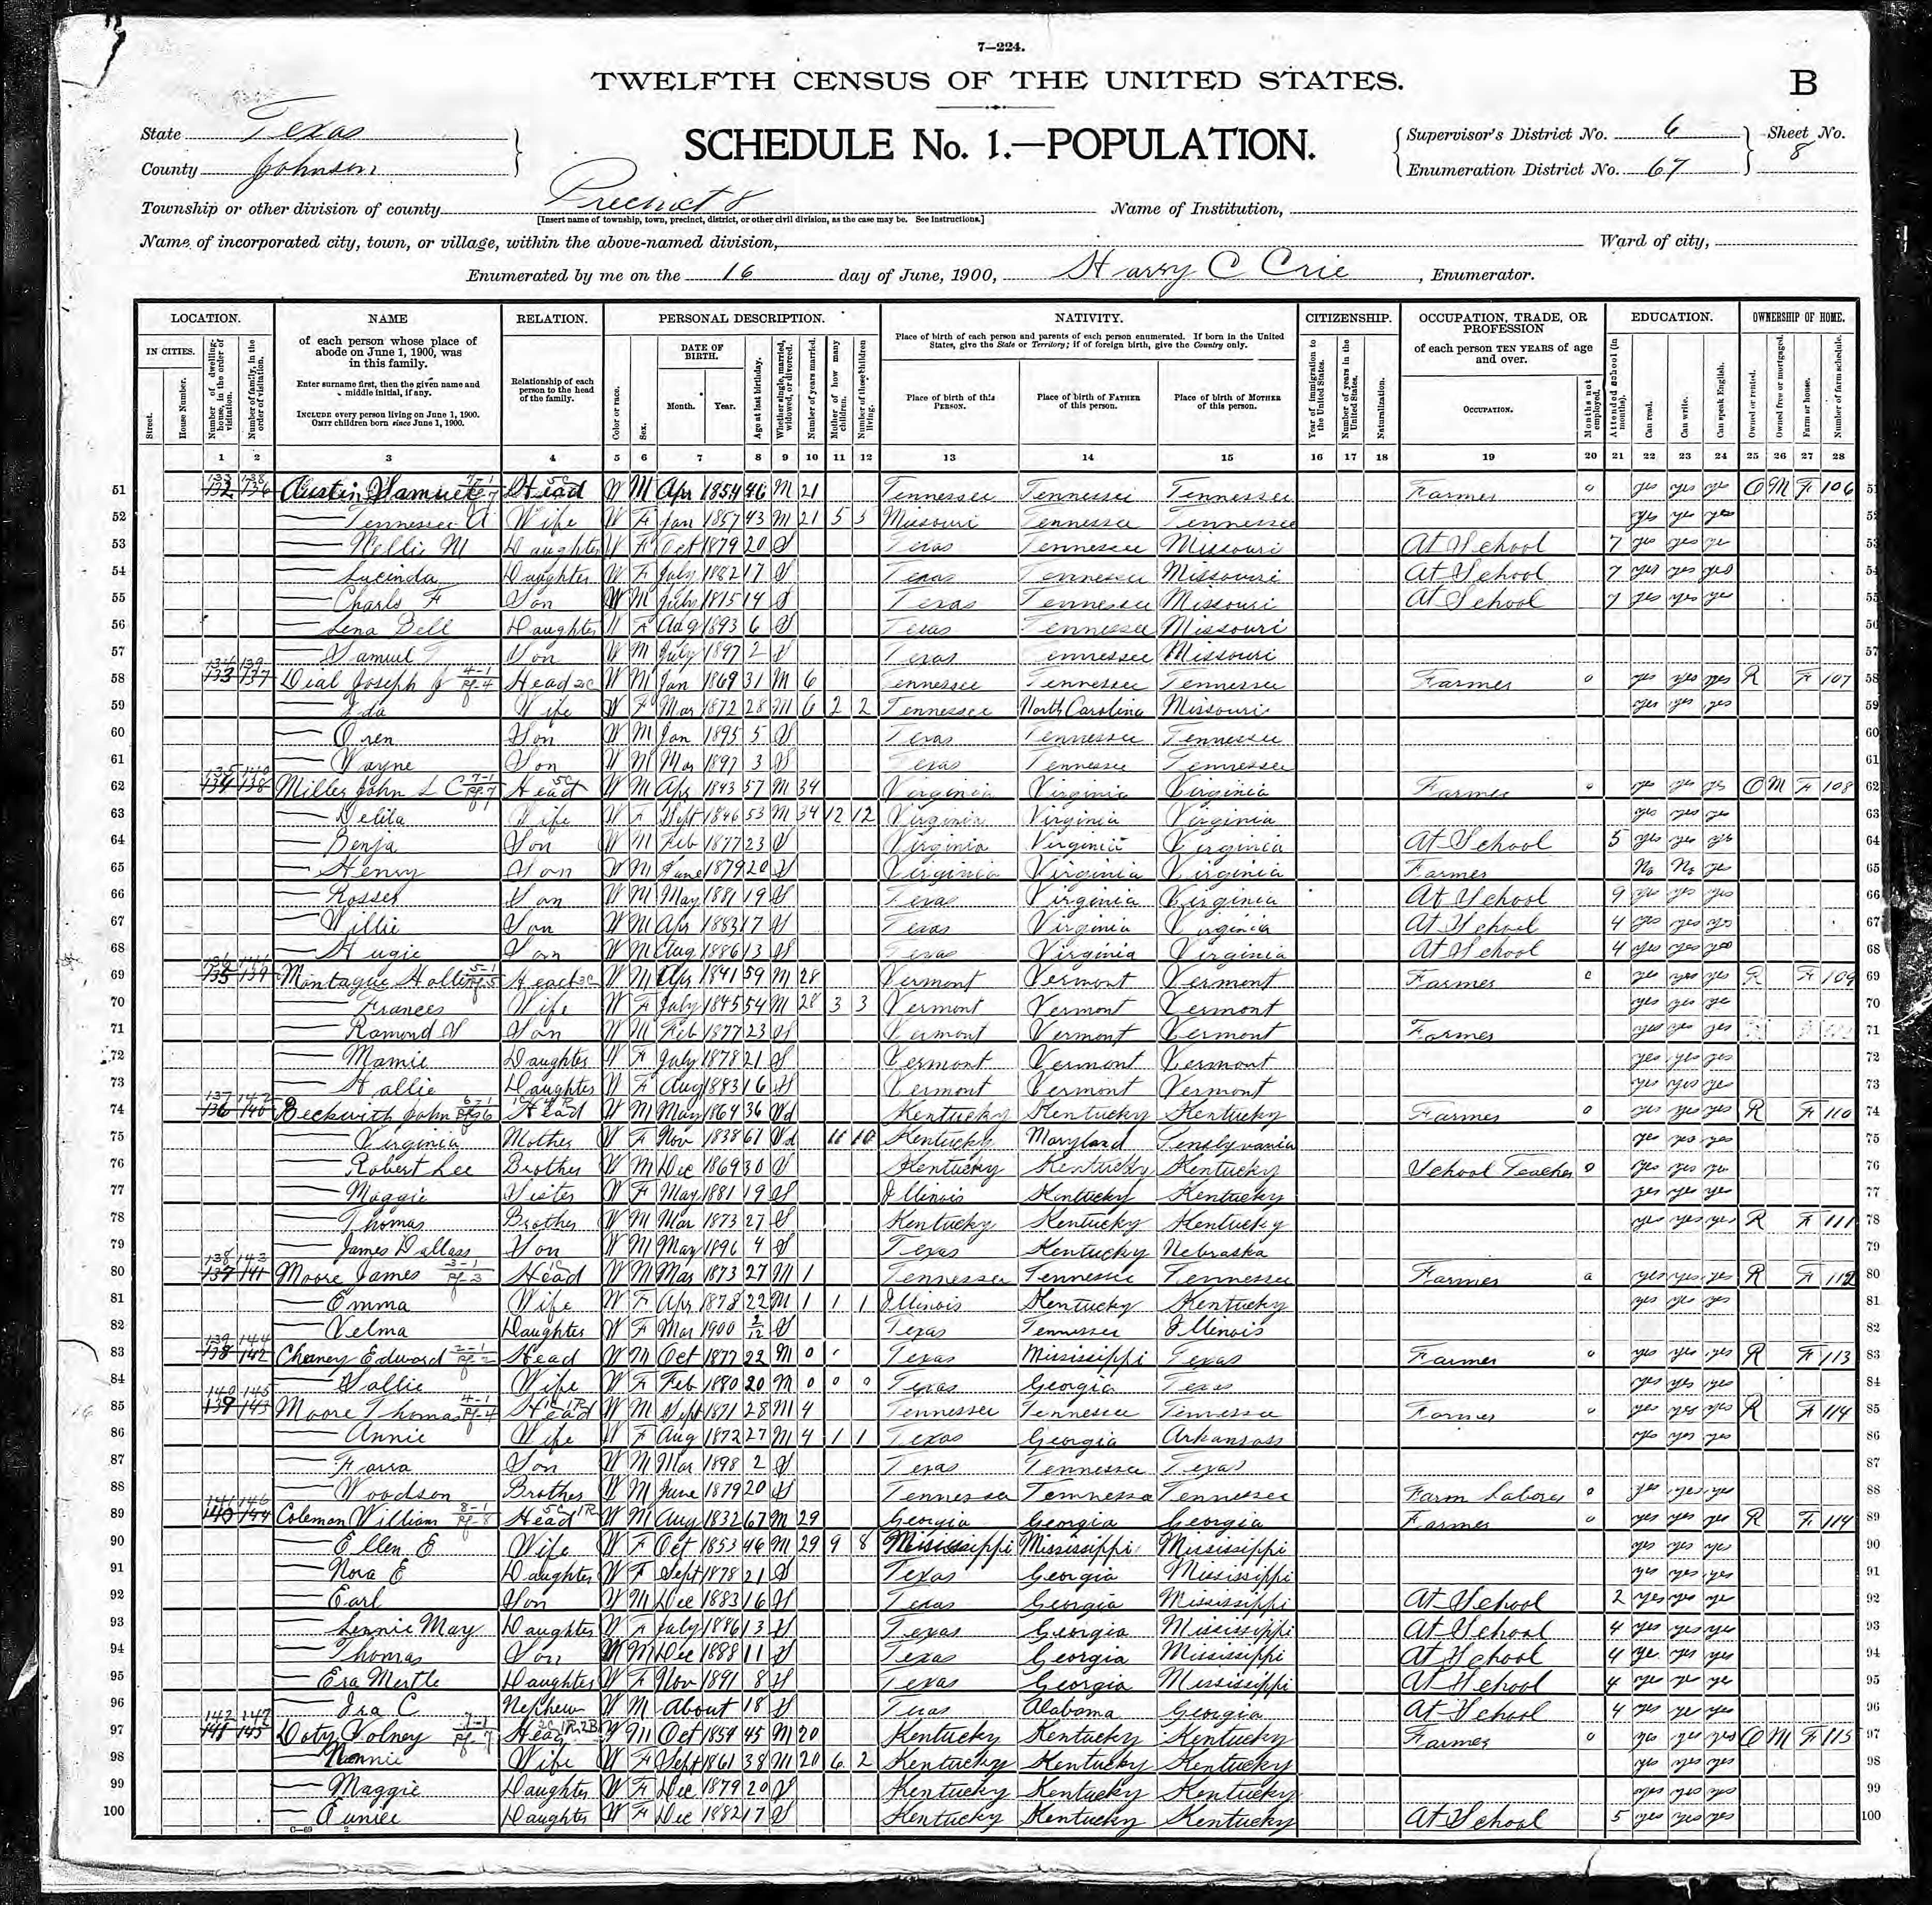 7—224.
TWELFTH CENSUS OF THE UNITED STATES.
B
State Texas
County Johnson
SCHEDULE No. 1.—POPULATION.
Supervisor's District No. 6
Enumeration District No. 67
Sheet No. 8
Township or other division of county Precinct 8
[Insert name of township, town, precinct, district, or other civil division, as the case may be. See instructions.]
Name of Institution,
Name of incorporated city, town, or village, within the above-named division,
Ward of city,
Enumerated by me on the 16 day of June, 1900, Harry C Crie, Enumerator.
LOCATION. NAME RELATION. PERSONAL DESCRIPTION. NATIVITY. CITIZENSHIP. OCCUPATION, TRADE, OR PROFESSION EDUCATION. OWNERSHIP OF HOME.
IN CITIES.
Street.
House Number.
Number of dwelling-house, in the order of visitation.
Number of family, in the order of visitation.
of each person whose place of abode on June 1, 1900, was in this family.
Enter surname first, then the given name and middle initial, if any.
INCLUDE every person living on June 1, 1900.
OMIT children born since June 1, 1900.
Relationship of each person to the head of the family.
Color or race.
Sex.
DATE OF BIRTH.
Month. Year.
Age at last birthday.
Whether single, married, widowed, or divorced.
Number of years married.
Mother of how many children.
Number of these children living.
Place of birth of each person and parents of each person enumerated. If born in the United States, give the State or Territory; if of foreign birth, give the Country only.
Place of birth of this PERSON.
Place of birth of FATHER of this person.
Place of birth of MOTHER of this person.
Year of immigration to the United States.
Number of years in the United States.
Naturalization.
of each person TEN YEARS of age and over.
OCCUPATION.
Months not employed.
Attended school (in months).
Can read.
Can write.
Can speak English.
Owned or rented.
Owned free or mortgaged.
Farm or house.
Number of farm schedule.
1 2 3 4 5 6 7 8 9 10 11 12 13 14 15 16 17 18 19 20 21 22 23 24 25 26 27 28
51 133 138 132 136 Austin Samuel Head W M Apr 1854 46 M 21 Tennessee Tennessee Tennessee Farmer 0 yes yes yes O M F 106 51
52 — Tennessee A Wife W F Jan 1857 43 M 21 5 5 Missouri Tennessee Tennessee yes yes yes 52
53 — Nellie M Daughter W F Oct 1879 20 S Texas Tennessee Missouri At School 7 yes yes ye 53
54 — Lucinda Daughter W F July 1882 17 S Texas Tennessee Missouri At School 7 yes yes yes 54
55 — Charls F Son W M July 1815 14 S Texas Tennessee Missouri At School 7 yes yes ye 55
56 — Lena Bell Daughter W F Aug 1893 6 S Texas Tennessee Missouri 56
57 — Samuel T Son W M July 1897 2 S Texas Tennessee Missouri 57
58 134 139 133 137 Dial Joseph J Head W M Jan 1869 31 M 6 Tennessee Tennessee Tennessee Farmer 0 yes yes yes R F 107 58
59 — Ida Wife W F Mar 1872 28 M 6 2 2 Tennessee North Carolina Missouri yes yes yes 59
60 — Oren Son W M Jan 1895 5 S Texas Tennessee Tennessee 60
61 — Wayne Son W M Mar 1897 3 S Texas Tennessee Tennessee 61
62 135 140 134 138 Miller John L C Head W M Apr 1843 57 M 34 Virginia Virginia Virginia Farmer 0 yes yes ys O M F 108 62
63 — Delila Wife W F Sept 1846 53 M 34 12 12 Virginia Virginia Virginia yes yes yes 63
64 — Benja Son W M Feb 1877 23 S Virginia Virginia Virginia At School 5 yes yes yes 64
65 — Henry Son W M June 1879 20 S Virginia Virginia Virginia Farmer No No ye 65
66 — Rosser Son W M May 1881 19 S Texas Virginia Virginia At School 9 ye yes yes 66
67 — Willie Son W M Apr 1883 17 S Texas Virginia Virginia At School 4 yes yes yes 67
68 — Hugie Son W M Aug 1886 13 S Texas Virginia Virginia At School 4 yes yes yes 68
69 136 141 135 139 Montague Hollis Head W M Apr 1841 59 M 28 Vermont Vermont Vermont Farmer yes yes yes R F 109 69
70 — Frances Wife W F July 1845 54 M 28 3 3 Vermont Vermont Vermont yes yes ye 70
71 — Ramond Son W M Feb 1877 23 S Vermont Vermont Vermont Farmer yes yes yes 71
72 — Mamie Daughter W F July 1878 21 S Vermont Vermont Vermont yes yes yes 72
73 — Hallie Daughter W F Aug 1883 16 S Vermont Vermont Vermont yes yes ye 73
74 137 142 136 140 Beckwith John Head W M May 1864 36 Wd Kentucky Kentucky Kentucky Farmer 0 yes yes yes R F 110 74
75 — Virginia Mother W F Nov 1838 61 Wd 11 10 Kentucky Maryland Penslyvania ye yes yes 75
76 — Robert Lee Brother W M Dec 1869 30 S Kentucky Kentucky Kentucky School Teacher 0 yes yes ye 76
77 — Maggie Sister W F May 1881 19 S Illinois Kentucky Kentucky yes yes ye 77
78 — Thomas Brother W M Mar 1873 27 S Kentucky Kentucky Kentucky yes yes yes R F 111 78
79 — James Dallass Son W M May 1896 4 S Texas Kentucky Nebraska 79
80 138 143 137 141 Moore James Head W M Mar 1873 27 M 1 Tennessee Tennessee Tennessee Farmer yes yes yes R F 112 80
81 — Emma Wife W F Apr 1878 22 M 1 1 1 Illinois Kentucky Kentucky yes yes yes 81
82 — Velma Daughter W F Mar 1900 2/12 S Texas Tennessee Illinois 82
83 139 144 138 142 Chaney Edward Head W M Oct 1877 22 M 0 Texas Mississippi Texas Farmer 0 yes yes yes R F 113 83
84 — Sallie Wife W F Feb 1880 20 M 0 0 0 Texas Georgia Texas yes yes yes 84
85 140 145 139 143 Moore Thomas Head W M Sept 1871 28 M 4 Tennessee Tennessee Tennessee Farmer 0 yes yes yes R F 114 85
86 — Annie Wife W F Aug 1872 27 M 4 1 1 Texas Georgia Arkansass yes yes yes 86
87 — Farra Son W M Mar 1898 2 S Texas Tennessee Texas 87
88 — Woodson Brother W M June 1879 20 S Tennessee Tennessee Tennessee Farm Laborer 0 yes yes yes 88
89 141 146 140 144 Coleman William Head W M Aug 1832 67 M 29 Georgia Georgia Georgia Farmer 0 yes yes yes R F 114 89
90 — Ellen E Wife W F Oct 1853 46 M 29 9 8 Mississippi Mississippi Mississippi yes yes yes 90
91 — Nora E Daughter W F Sept 1878 21 S Texas Georgia Mississippi yes yes yes 91
92 — Earl Son W M Dec 1883 16 S Texas Georgia Mississippi At School 2 yes yes ye 92
93 — Lennie May Daughter W F July 1886 13 S Texas Georgia Mississippi At School 4 yes yes yes 93
94 — Thomas Son W M Dec 1888 11 S Texas Georgia Mississippi At School 4 ye yes yes 94
95 — Era Mertle Daughter W F Nov 1891 8 S Texas Georgia Mississippi At School 4 ye ye yes 95
96 — Ira C Nephew W M About 18 S Texas Alabama Georgia At School 4 yes ye yes 96
97 142 147 141 145 Doty Volney Head W M Oct 1854 45 M 20 Kentucky Kentucky Kentucky Farmer 0 yes yes yes O M F 115 97
98 — Nannie Wife W F Sept 1861 38 M 20 6 2 Kentucky Kentucky Kentucky yes yes yes 98
99 — Maggie Daughter W F Dec 1879 20 S Kentucky Kentucky Kentucky yes yes yes 99
100 — Eunice Daughter W F Dec 1882 17 S Kentucky Kentucky Kentucky At School 5 yes yes yes 100